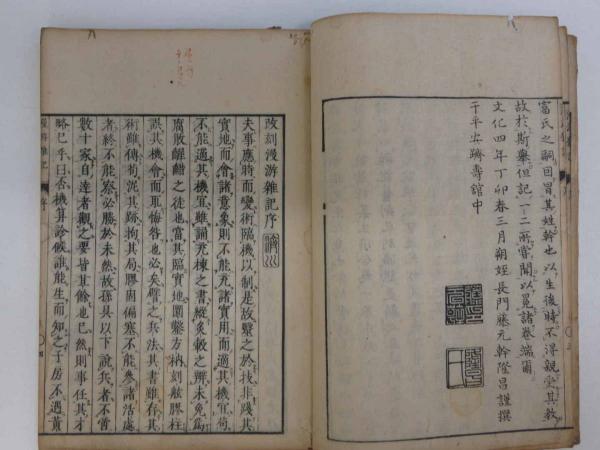 富氏之嗣因冒其姓幹也以生後時不得親受其教
故於斯擧但記一二所嘗聞以冕諸卷端爾
文化四年丁卯春三月朔姪長門藤元幹隆昌謹撰
于平安躋壽舘中
改刻漫游雜記序
夫事應時而變術臨機以制是故毉之於技非踐其
實地而會諸意象則不能充諸實用而適其機宜苟
不能適其機宜雖誦充棟之書縱炙轂之辨未免爲
腐敗醯醋之徒也當其臨實地圜鑿方枘刻舷膠柱
誤其機會而取悔咎也必矣譬之兵法其書雖存其
術難傳苟泥其跡拘其局膠固偏塞不能參諸活處
者終不能察必勝於未然故孫吳以下說兵者不啻
數十家自達者觀之要皆其餘也已然則事任其才
略已乎曰否機算診候誰能生而知之子房不遇黃
漫游雜記 序